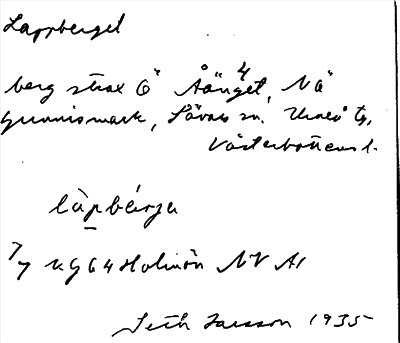 Lappberget
berg strax Ö Åänget, NÖ
Gunnismark, Sävars sn. Umeå tg,
Västerbottens l.
làpbérjə
7/7 kg 64 Holmön NV A1
Seth Larsson 1935